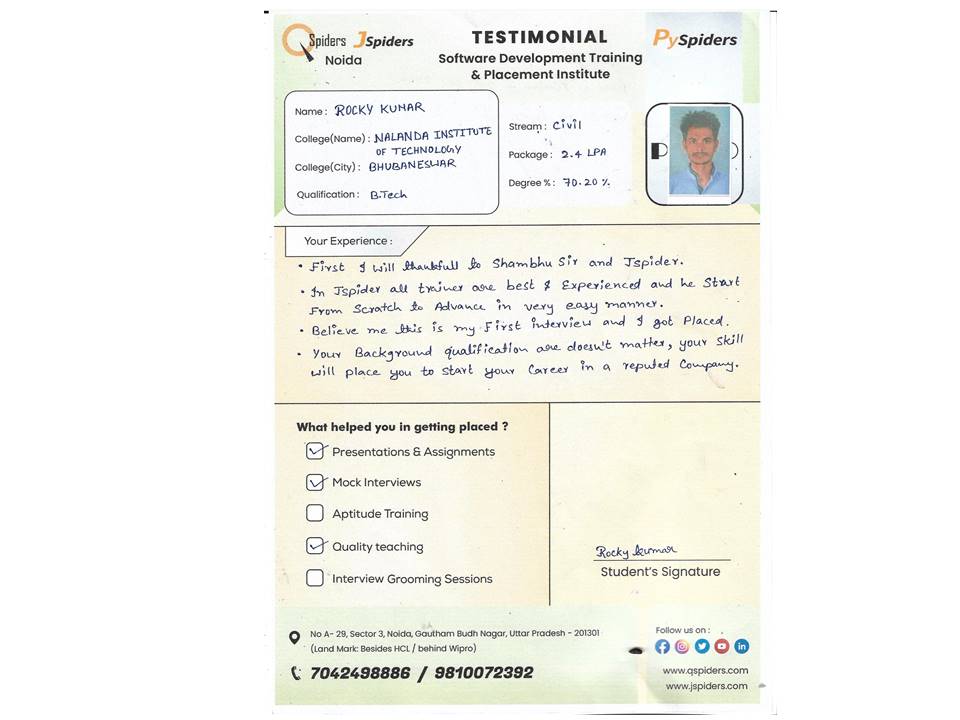 QSpiders JSpiders
Noida
TESTIMONIAL
Software Development Training
& Placement Institute
PySpiders
Name : ROCKY KUMAR
College(Name) : NALANDA INSTITUTE
OF TECHNOLOGY
College(City) : BHUBANESWAR
Qualification : B.Tech
Stream : Civil
Package : 2.4 LPA
Degree % : 70.20 %
Your Experience :
• First I will thankfull to Shambhu Sir and Jspider.
• In Jspider all trainer are best & Experienced and he Start
From Scratch to Advance in very easy manner.
• Believe me this is my First interview and I got Placed.
• Your Background qualification are doesn't matter, your skill
will place you to start your Career in a reputed Company.
What helped you in getting placed ?
Presentations & Assignments
Mock Interviews
Aptitude Training
Quality teaching
Interview Grooming Sessions
Rocky kumar
Student's Signature
No A- 29, Sector 3, Noida, Gautham Budh Nagar, Uttar Pradesh - 201301
(Land Mark: Besides HCL / behind Wipro)
7042498886 / 9810072392
Follow us on :
www.qspiders.com
www.jspiders.com